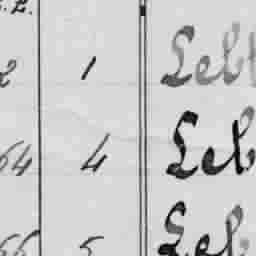 2 1 Leb
64 4 Leb
66 5 Leb